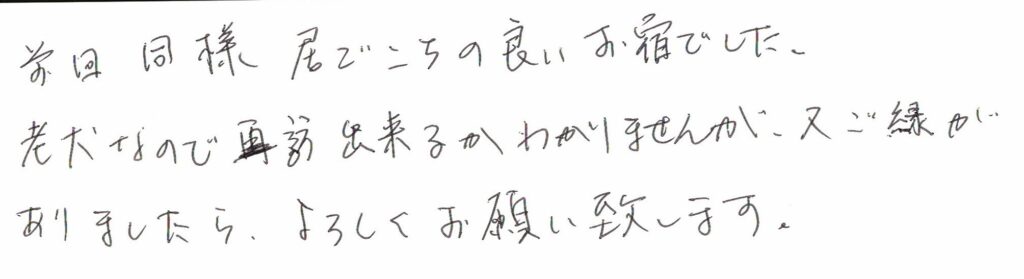 前回同様 居ごこちの良いお宿でした。
老犬なので再訪出来るかわかりませんが、又ご縁が
ありましたら、よろしくお願い致します。